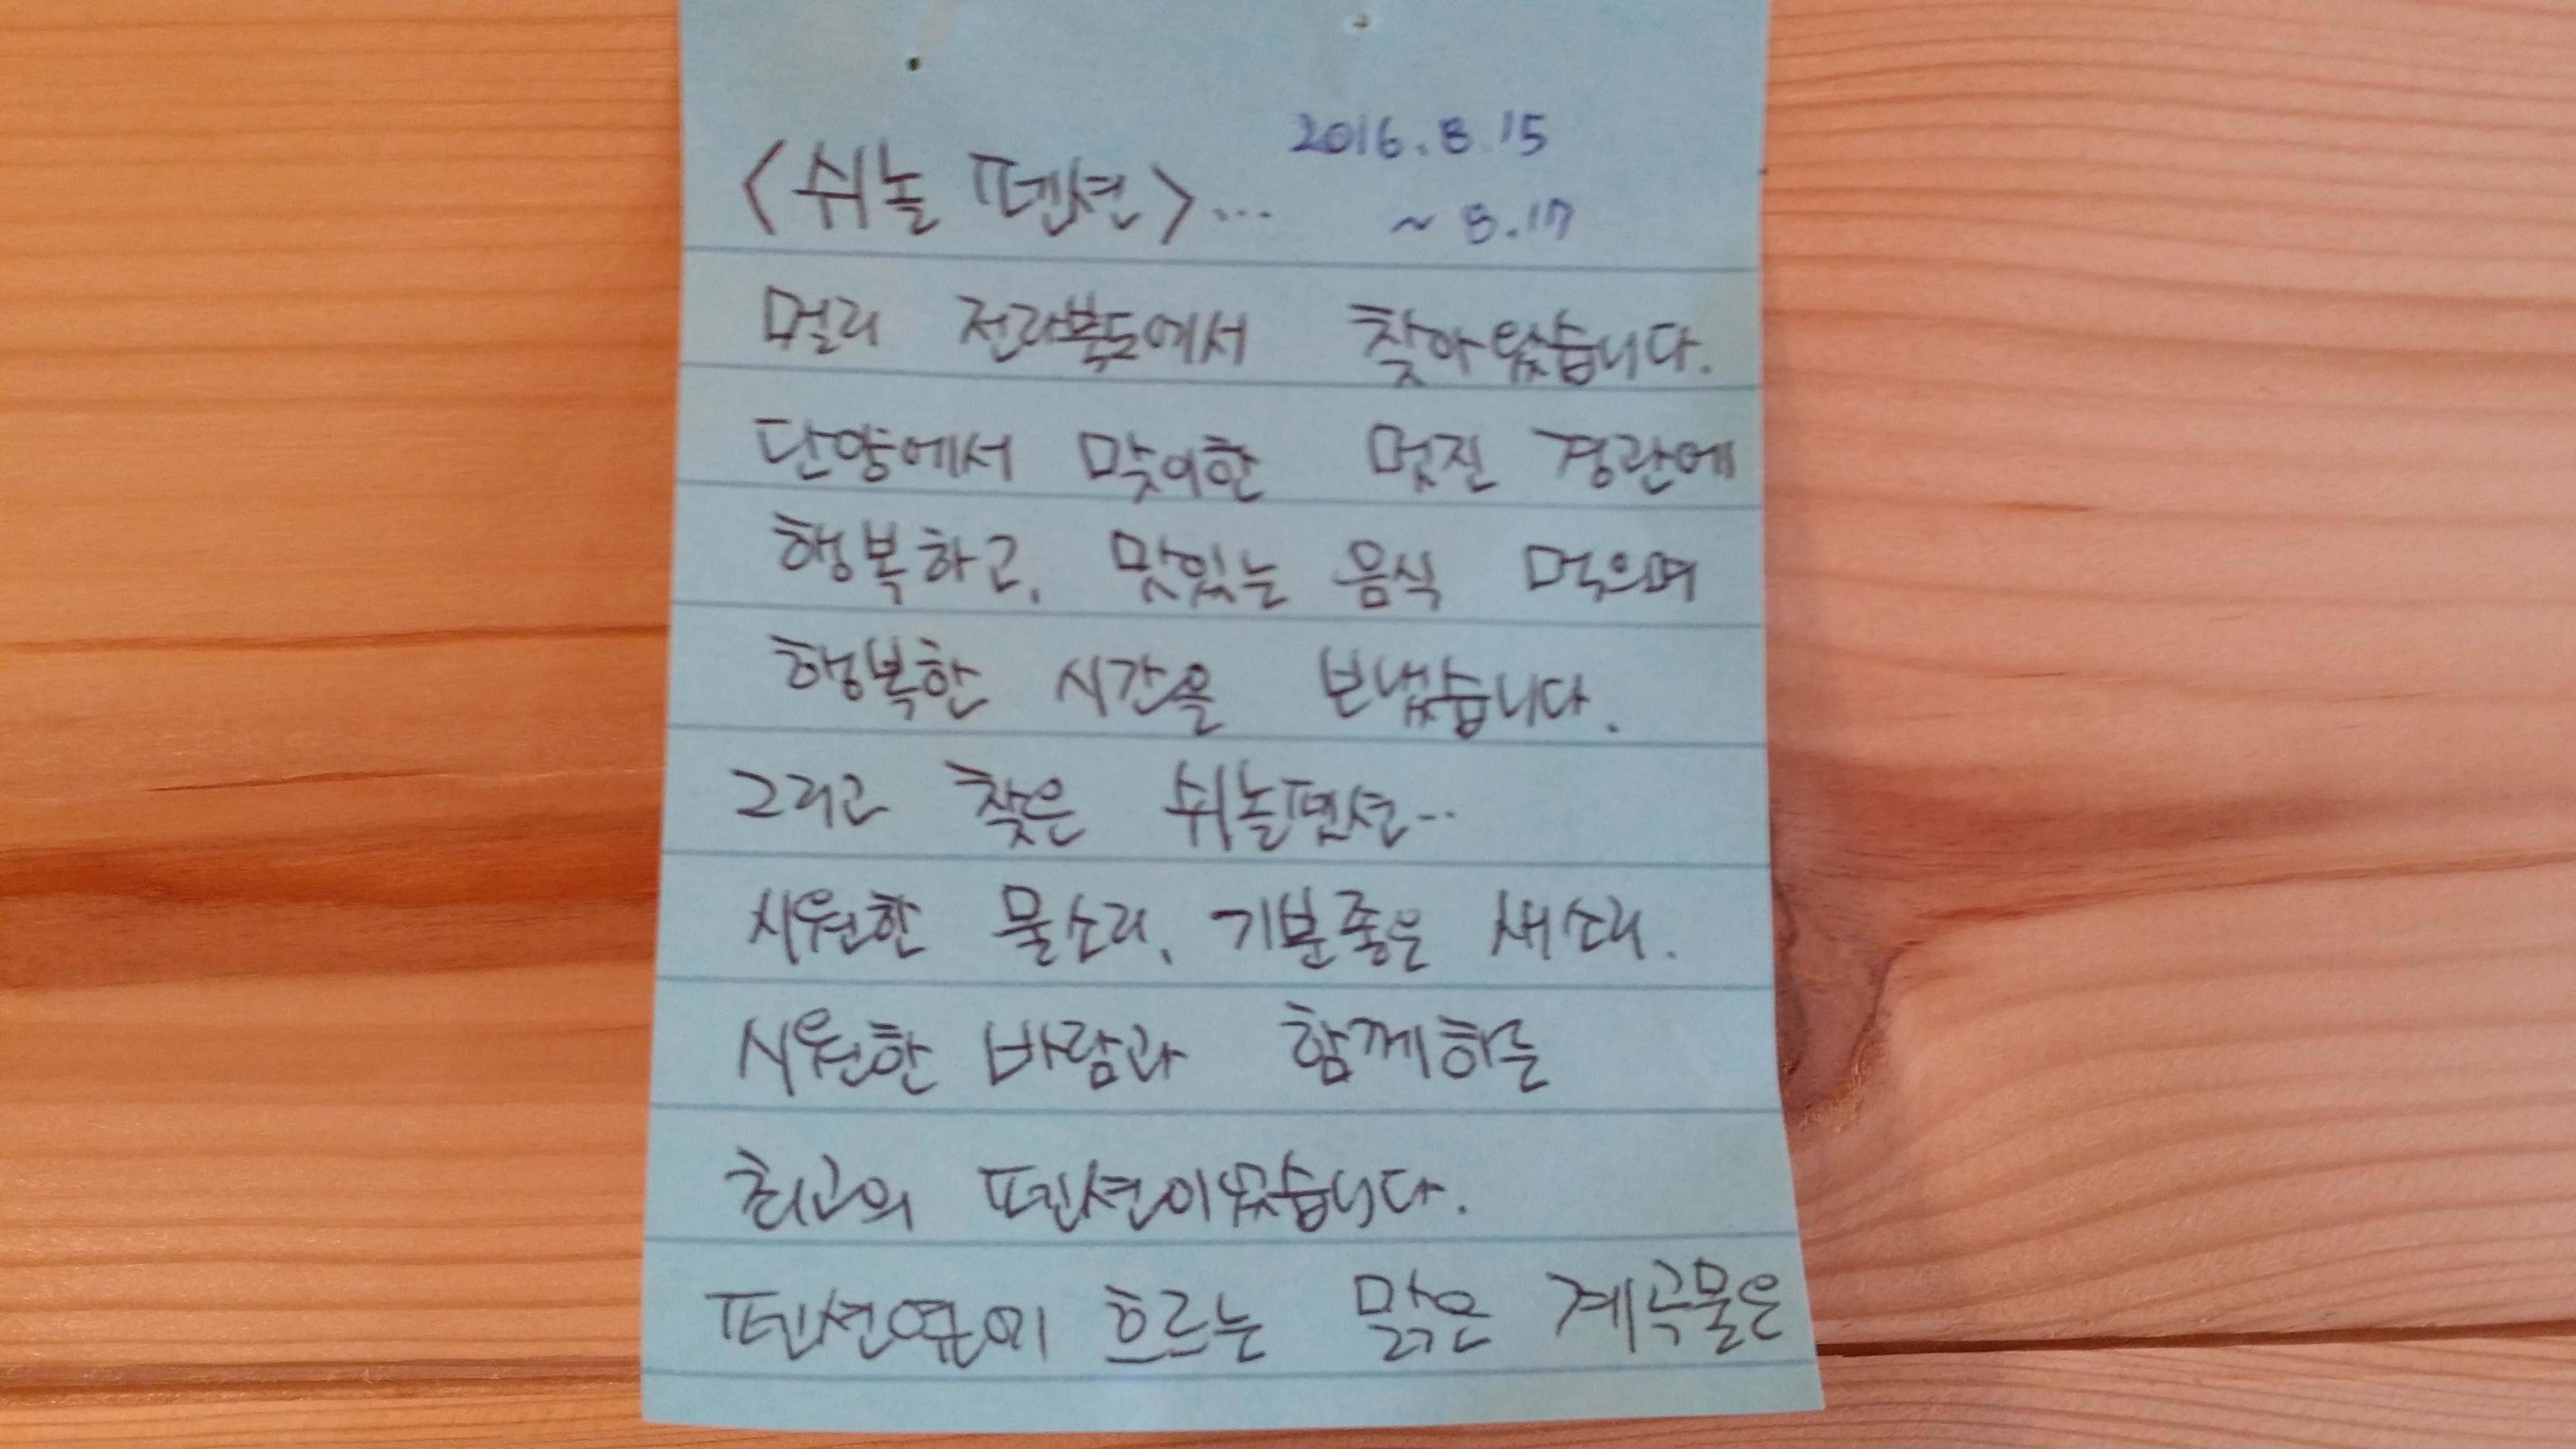 2016.8.15
<쉬놀 펜션>...
~ 8.17
멀리 전라북도에서 찾아 왔습니다.
단양에서 맞이한 멋진 경관에
행복하고, 맛있는 음식 먹으며
행복한 시간을 보냈습니다.
그리고 찾은 쉬놀펜션...
시원한 물소리, 기분좋은 새소리.
시원한 바람과 함께하는
최고의 펜션이었습니다.
펜션옆에 흐르는 맑은 계곡물은